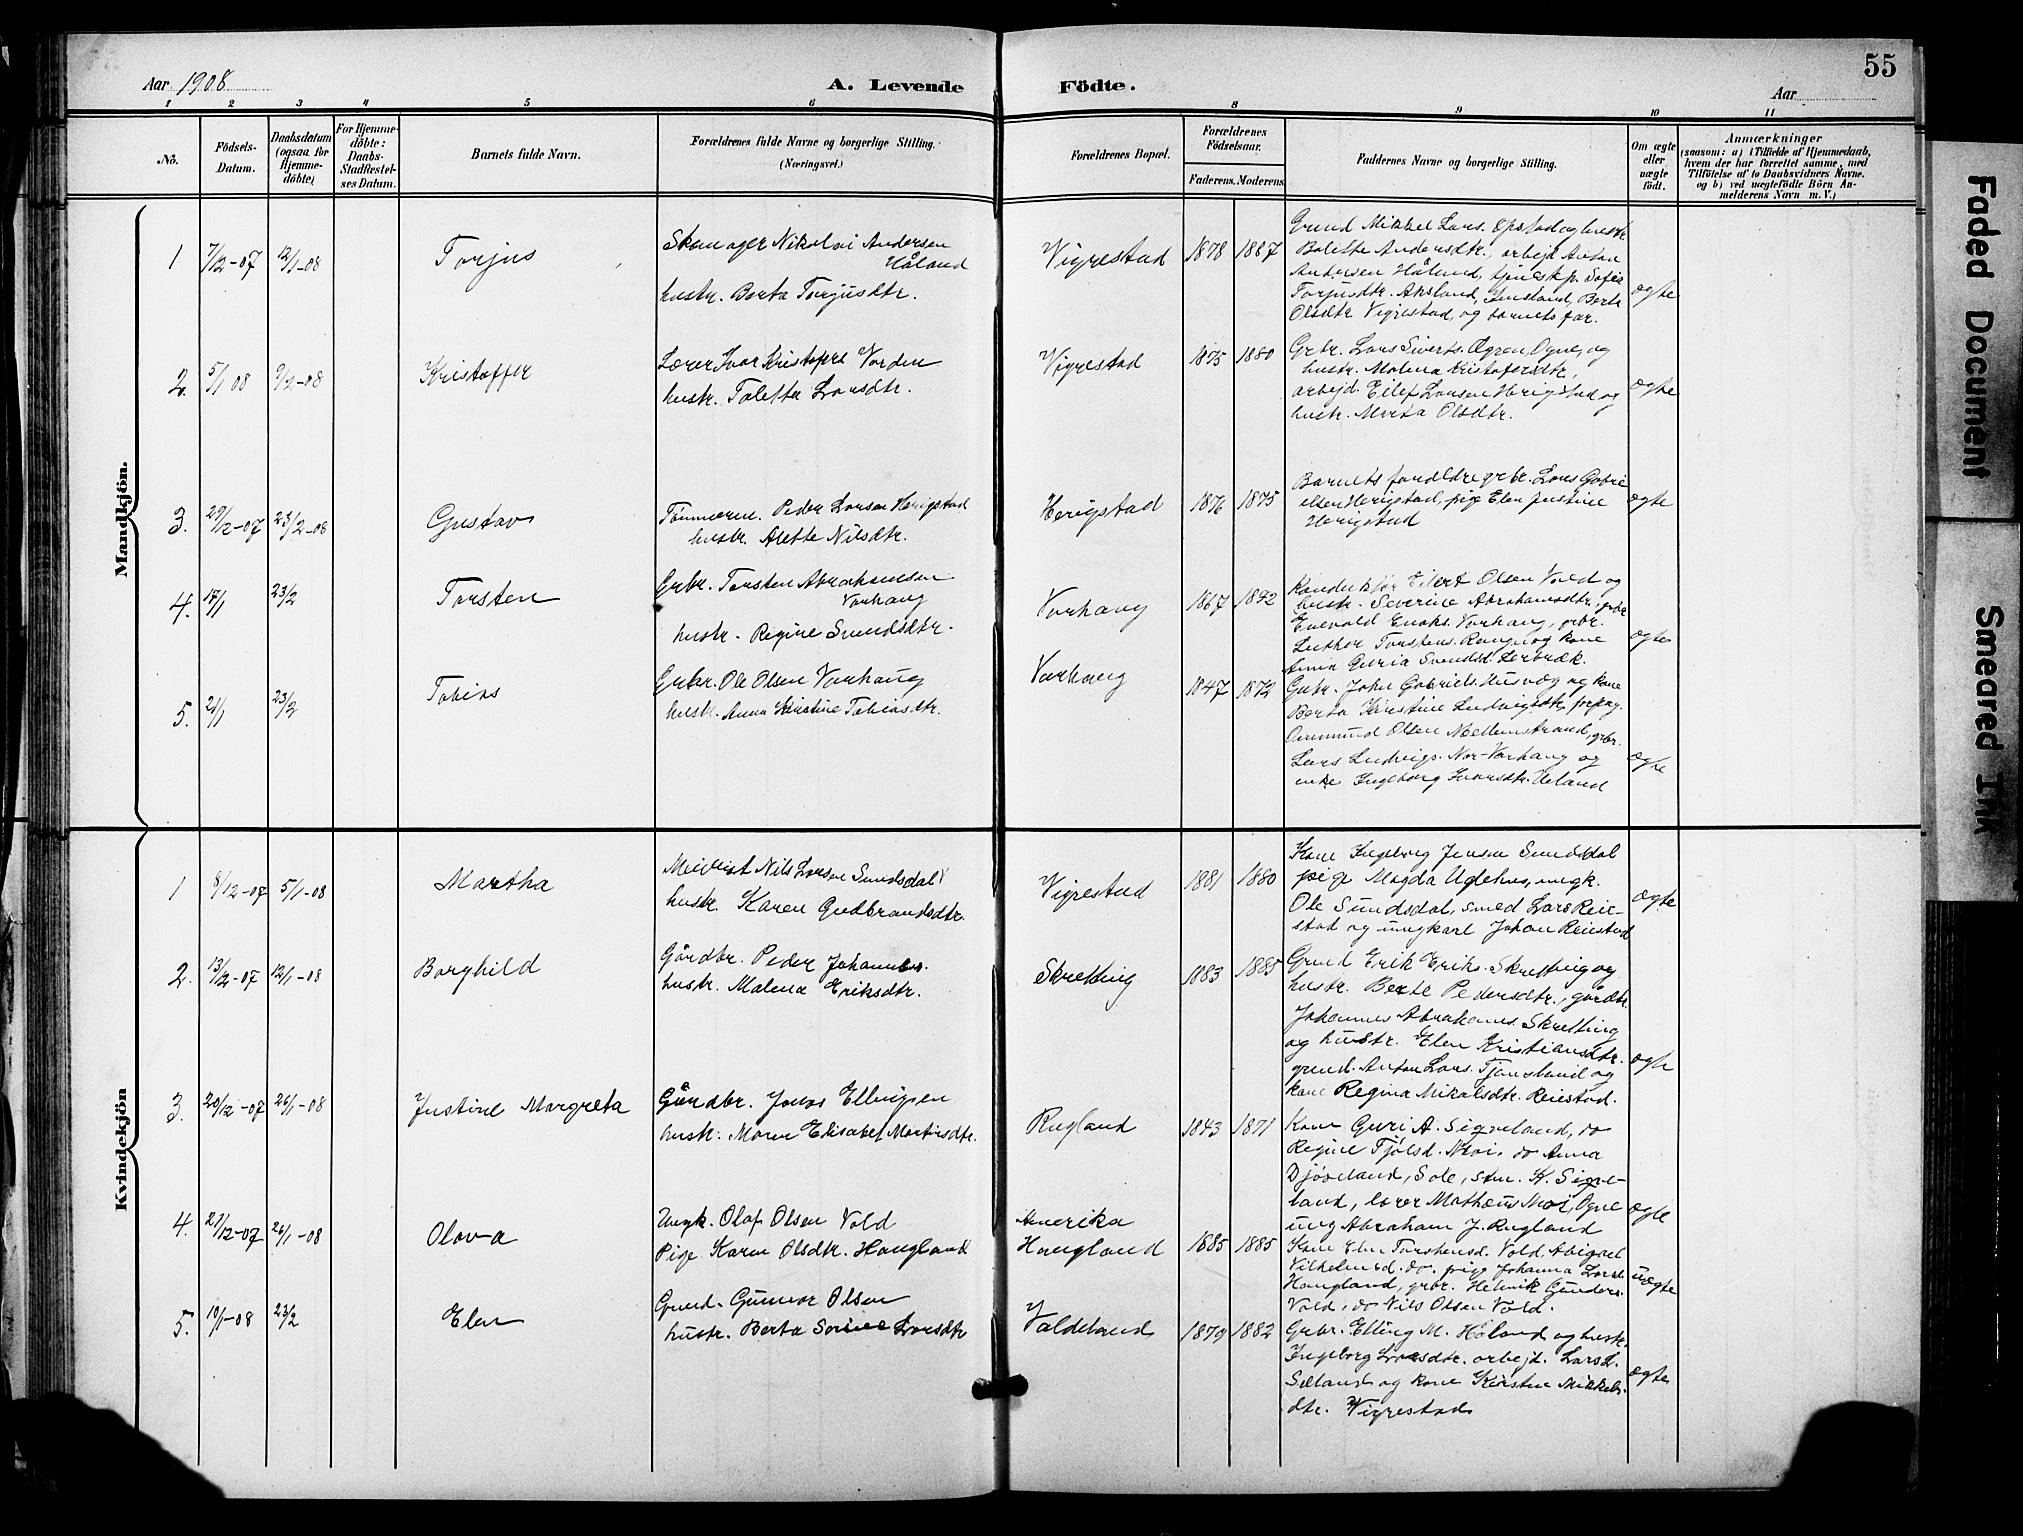 55
Aar 1908 A. Levende Födte. Aar
1 2 3 4 5 6 8 9 10 11
No.
Födsels-
Datum.
Daabsdatum
(ogsaa for
Hjemme-
döbte)
For Hjemme-
döbte:
Daabs-
Stadfæstel-
ses Datum.
Barnets fulde Navn.
Forældrenes fulde Navne og borgerlige Stilling.
(Næringsvei.)
Forældrenes Bopæl.
Forældrenes
Födselsaar.
Faderens. Moderens.
Faddernes Navne og borgerlige Stilling.
Om ægte
eller
uægte
födt.
Anmærkninger
(saasom: a) i Tilfælde af Hjemmedaab,
hvem der har forrettet samme, med
Tilföielse af to Daabsvidners Navne.
og b) ved uægtefödte Börn An-
melderens Navn m. V.)
Mandkjön.
1 7/12-07 12/1-08 Torjus
Skomager Nikolai Andersen
Håland
hustr. Berta Torjusdtr.
Vigrestad 1878 1887
Grmd Mikkel Lars. Opstad og hustr.
Bolette Andersdtr., arbejd. Anton
Andersen Håland, tjenestp. Sofie
Torjusdtr. Aksland, Berte
Olsdtr. Vigrestad, og barnets far.
ægte
2. 5/1 08 9/2-08 Kristoffer
Lærer Ivar Kristofers. Vorden
hustr. Taletta Larsdtr.
Vigrestad 1875 1880
Grbr. Lars Siverts. Ogne, og
hustr. Malena Kristofersdtr.,
arbejd. Eilef Larsen Herigstad og
hustr. Marta Olsdtr.
ægte
3. 29/12-07 23/2-08 Gustav
Tömmerm. Peder Larsen Herigstad
hustr. Alette Nilsdtr.
Herigstad 1876 1875
Barnets foreldre, grbr. Lars Gabri-
elsen Herigstad, pige Elen Justine
Herigstad
ægte
4. 17/1 23/2 Torsten
Grbr. Torsten Abrahamsen
Varhaug
hustr. Regine Svendsdtr.
Varhaug 1867 1872
Konduktør Eilert Olsen Vold og
hustr. Severine Abrahamsdtr., grbr
Enevald Enoks. Varhaug, grbr.
Luther Torstens. og kone
Anna Guria Svendsd. Lerbræk.
ægte
5. 21/1 23/2 Tobias
Grbr. Ole Olsen Varhaug
hustr. Anna Kristine Tobiasdtr.
Varhaug 1847 1872
Grbr. John Gabriels. Husvæg og kone
Berta Kirstine Ludvigsdtr, forpag.
Ommund Olsen Mellemstrand, grbr.
Lars Ludvigs. Nor-Varhaug og
enke Ingeborg Ivarsdtr. Ueland
ægte
Kvindekjön
1 8/12-07 5/1-08 Martha
Meierist Nils Larsen Sundsdal
hustr. Karen Gudbrandsdtr.
Vigrestad 1881 1880
Kone Ingeborg Jensen Sundsdal
pige Magda Uglehus, ungk.
Ole Sundsdal, smed Lars Reie-
stad og ungkarl Johan Reiestad
ægte
2. 13/12-07 12/1-08 Borghild
Gårdbr. Peder Johannes.
hustr. Malena Eriksdtr.
Skretting 1883 1885
Grmd Erik Eriks. Skretting og
hustr. Berte Pedersdtr., gårdbr.
Johannes Abrahams. Skretting
og hustr. Elen Kristiansdtr.
grmd. Anton Lars. Tjensland og
kone Regina Mikalsdtr. Reiestad.
ægte
3. 20/12-07 26/1-08 Justine Margreta
Gårdbr. Jonas Ellingsen
hustr. Maren Elisabet Martinsdtr.
Rugland 1843 1871
Kone Guri A. Sigveland, do
Regine Tjølsd. Moi, do Anna
Djøseland, Sole, stm. K. Sigve-
land, lærer Mathæus Moi, Ogne
ung Abraham J. Rugland
ægte
4. 27/12-07 26/1-08 Olava
Ungk. Olaf Olsen Vold
Pige Karen Olsdtr. Haugland
Amerika
Haugland 1885 1885
Kone Elen Torstensd. Vold, Abigael
Vilhelmsd. do. pige Johanna Larsd.
Haugland, grbr. Helmik Gunders.
Vold, do Nils Olsen Vold.
uægte
5. 10/1-08 23/2 Elen
Grmd. Gunvar Olsen
hustr. Berta Sorine Larsdtr
Valdeland 1879 1882
Grbr. Elling M. Håland og hustr.
Ingeborg Larsdtr. arbejd. Lars L.
Sæland og kone Kirstine Mikkels-
dtr. Vigrestad
ægte
Faded Document
Smeared Ink